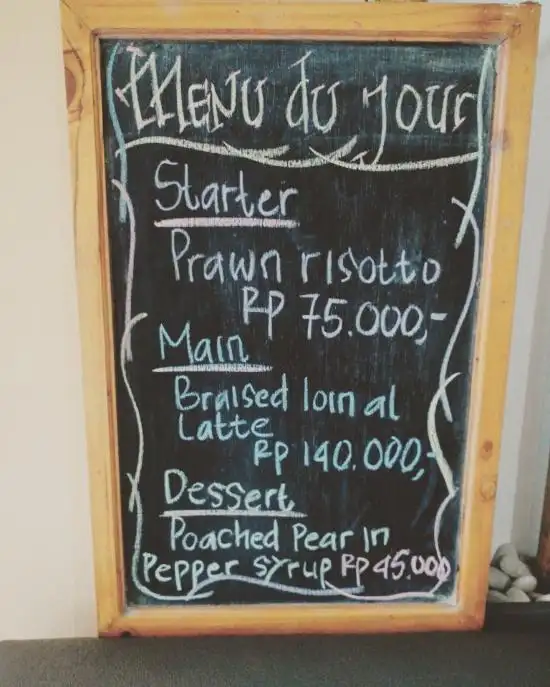 MENU du jour
Starter
Prawn risotto
RP 75.000,-
Main
Braised loin al
Latte
RP 140.000,-
Dessert
Poached Pear in
Pepper syrup RP 45.000